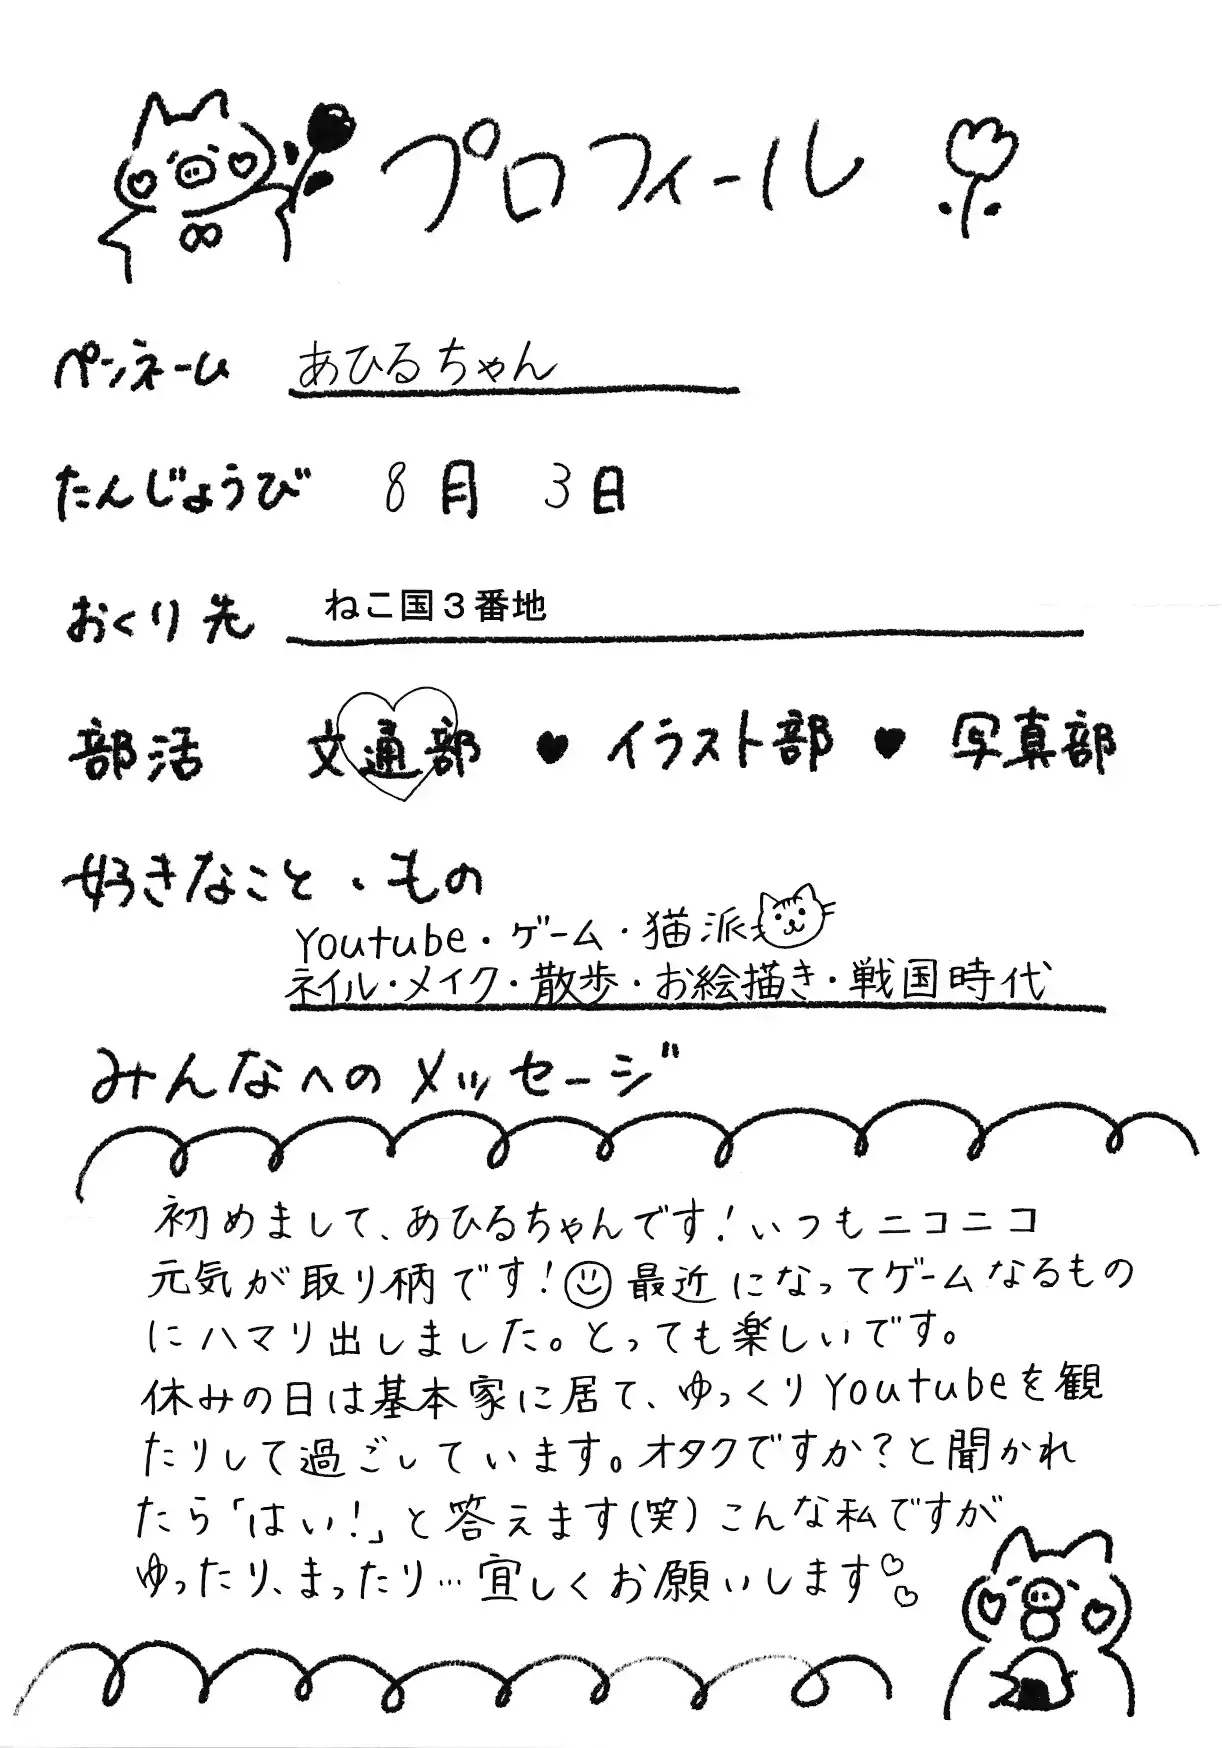 プロフィール
ペンネーム あひるちゃん
たんじょうび 8月 3日
おくり先 ねこ国3番地
部活 文通部 ♥ イラスト部 ♥ 写真部
好きなこと・もの
Youtube・ゲーム・猫派
ネイル・メイク・散歩・お絵描き・戦国時代
みんなへのメッセージ
初めまして、あひるちゃんです!いつもニコニコ
元気が取り柄です!最近になってゲームなるもの
にハマり出しました。とっても楽しいです。
休みの日は基本家に居て、ゆっくりYoutubeを観
たりして過ごしています。オタクですか?と聞かれ
たら「はい!」と答えます(笑)こんな私ですが
ゆったり、まったり…宜しくお願いします♡♡